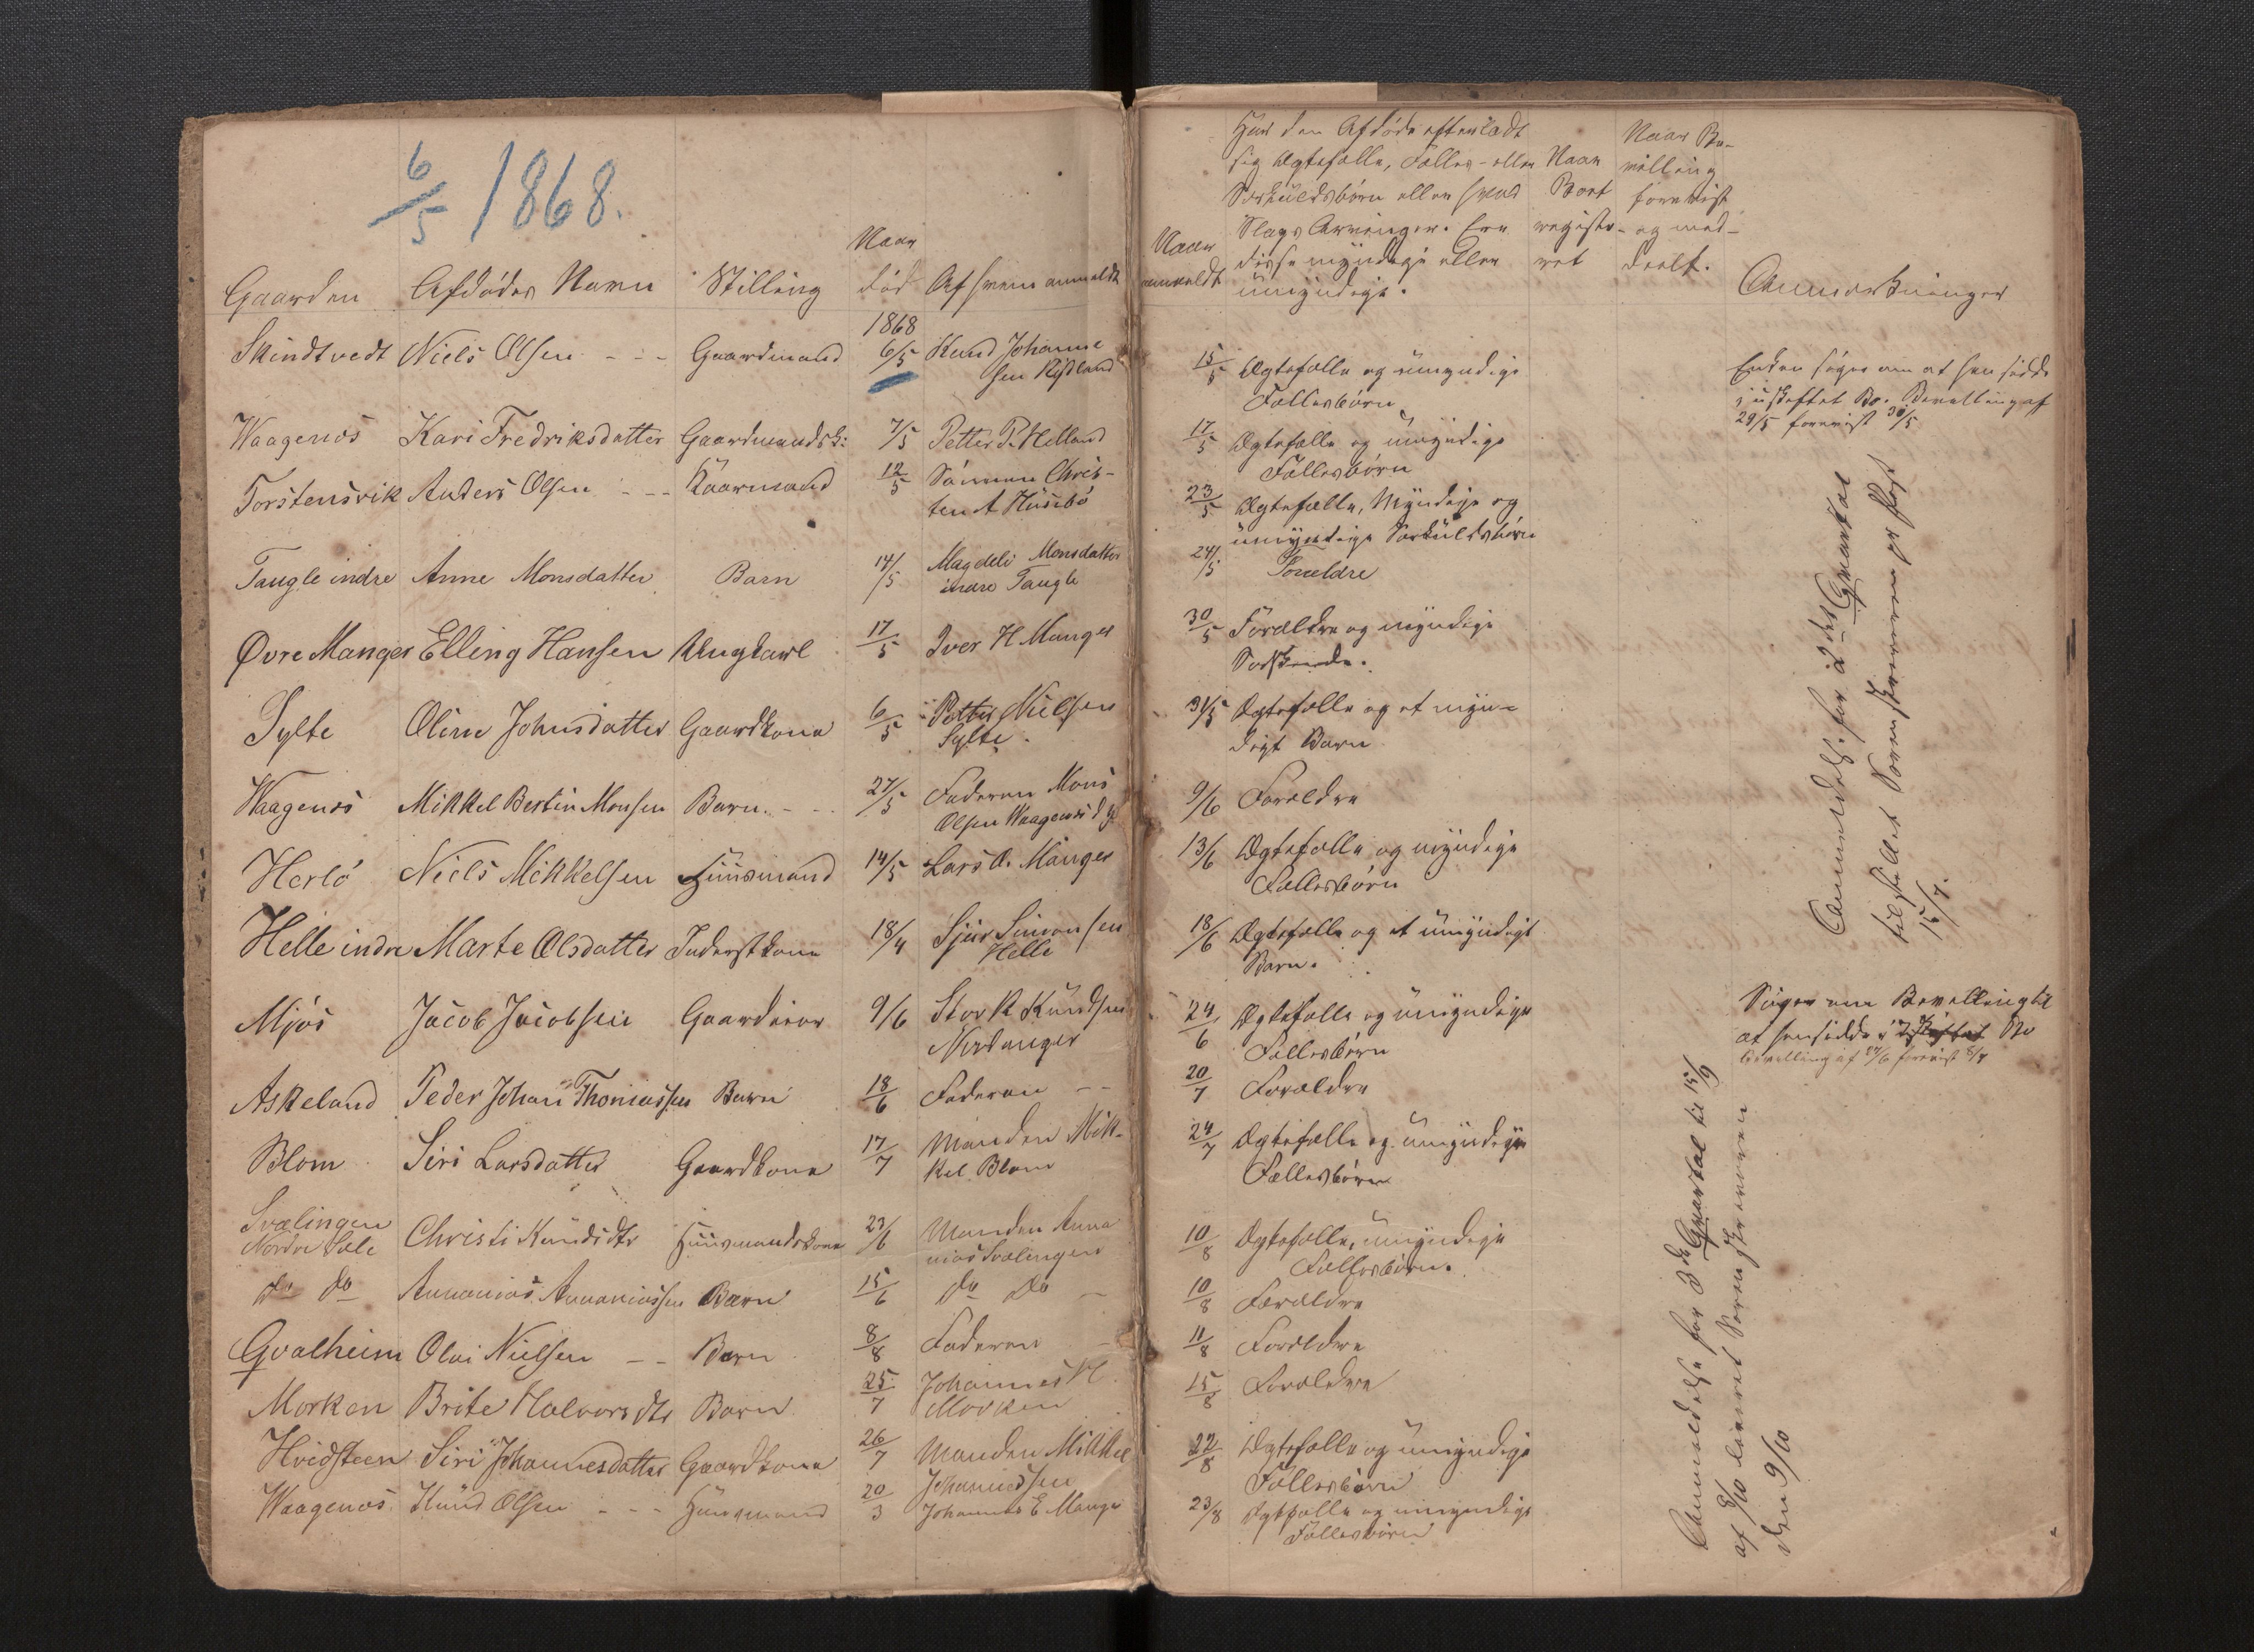 6/5 1868.
Gaarden Afdødes Navn Stilling Naar død Af hvem anmeldt
1868
Skindtvedt Niels Olsen - - - Gaardmand 6/5 Knud Johanne
sen Risland
Waagenos Kari Fredriksdatter Gaardmandsk: 7/5 Petter P. Helland
Torstensvik Anders Olsen - - - Kaarmand 12/5 Sønnen Chris-
ten A Husebø
Taugle indre Anne Monsdatter Barn 14/5 Magdeli Monsdatter
indre Taugle
Øvre Manger Elling Hansen Ungkarl 17/5 Iver H Manger
Sylte Oline Johnsdatter Gaardkone 6/5 Petter Nielsen
Sylte.
Waagenos Mikkel Bertin Monsen Barn. - - 27/5 Faderen Mons
Olsen Waagenos
Herlø Niels Mikkelsen Huusmand 14/5 Lars O. Manger
Helle indre Marte Olsdatter Inderstkone 18/4 Sjur Simonsen
Helle
Mjøs Jacob Jacobsen Gaardeier 9/6 Knudsen
Askeland Peder Johan Thomassen Barn 18/6 Faderen - -
Blom Siri Larsdatter Gaardkone 17/7 Manden Mik-
kel Blom
Svælingen
Nordre Sæle Christi Knudsdtr Huusmandskone 23/6 Manden Anna
nias Svælingen
do do Annanias Annaniassen Barn 15/6 do do -
Qvalheim Olai Nielsen - - Barn 8/8 Faderen -
Morken Brite Halvorsdtr Barn 25/7 Johannes H.
Morken
Hvidsteen Siri Johannesdatter Gaardkone 26/7 Manden Mikkel
Johannessen
Waagenos Knud Olsen - - - Huusmand 20/3 Johannes E Manger
Naar anmeldt
Har den Afdøde efterladt
sig Ægtefælle, Fælles- eller
Særkuldsbørn eller hvad
Slags Arvinger. Ere
disse myndige eller
umyndige.
Naar
Boet
registe-
ret
Naar Be-
villing
forevist
og med-
deelt.
Anmærkninger
15/5 Ægtefælle og umyndige
Fællesbørn
Enken søger om at hensidde
i uskiftet Bo. Bevilling af
29/5 forevist 30/5
17/5 Ægtefælle og umyndige
Fællesbørn
23/5 Ægtefælle, Myndige og
umyndige Særkuldsbørn
24/5 Foreldre
30/5 Forældre og myndige
Sødskende.
31/5 Ægtefælle og et myn-
digt Barn
9/6 Forældre
13/6 Ægtefælle og myndige
Fællesbørn
18/6 Ægtefælle og et umyndigt
Barn.
24/6 Ægtefælle og umyndige
Fællesbørn
Søger om Bevilling til
at hensidde i uskiftet Bo
Bevilling af 27/6 forevist 8/7
20/7 Forældre
24/7 Ægtefælle og umyndige
Fællesbørn
10/8 Ægtefælle, umyndige
Fællesbørn.
10/8 Forældre
11/8 Forældre
15/8 Forældre
22/8 Ægtefælle og umyndige
Fællesbørn
23/8 Ægtefælle og umyndige
Fællesbørn
Anmeldels. for 2det Qvartal
tilstillet Sorenskriveren pr Post
15/7.
Anmeldelse for 3de Qvartal til 15/9
af 8/10 leveret Sorenskriveren
den 9/10